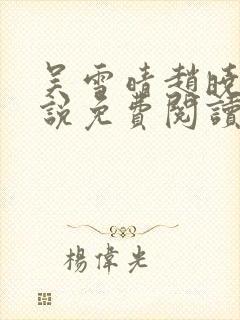 吴雪晴趙曉
說免費閱讀
楊偉光